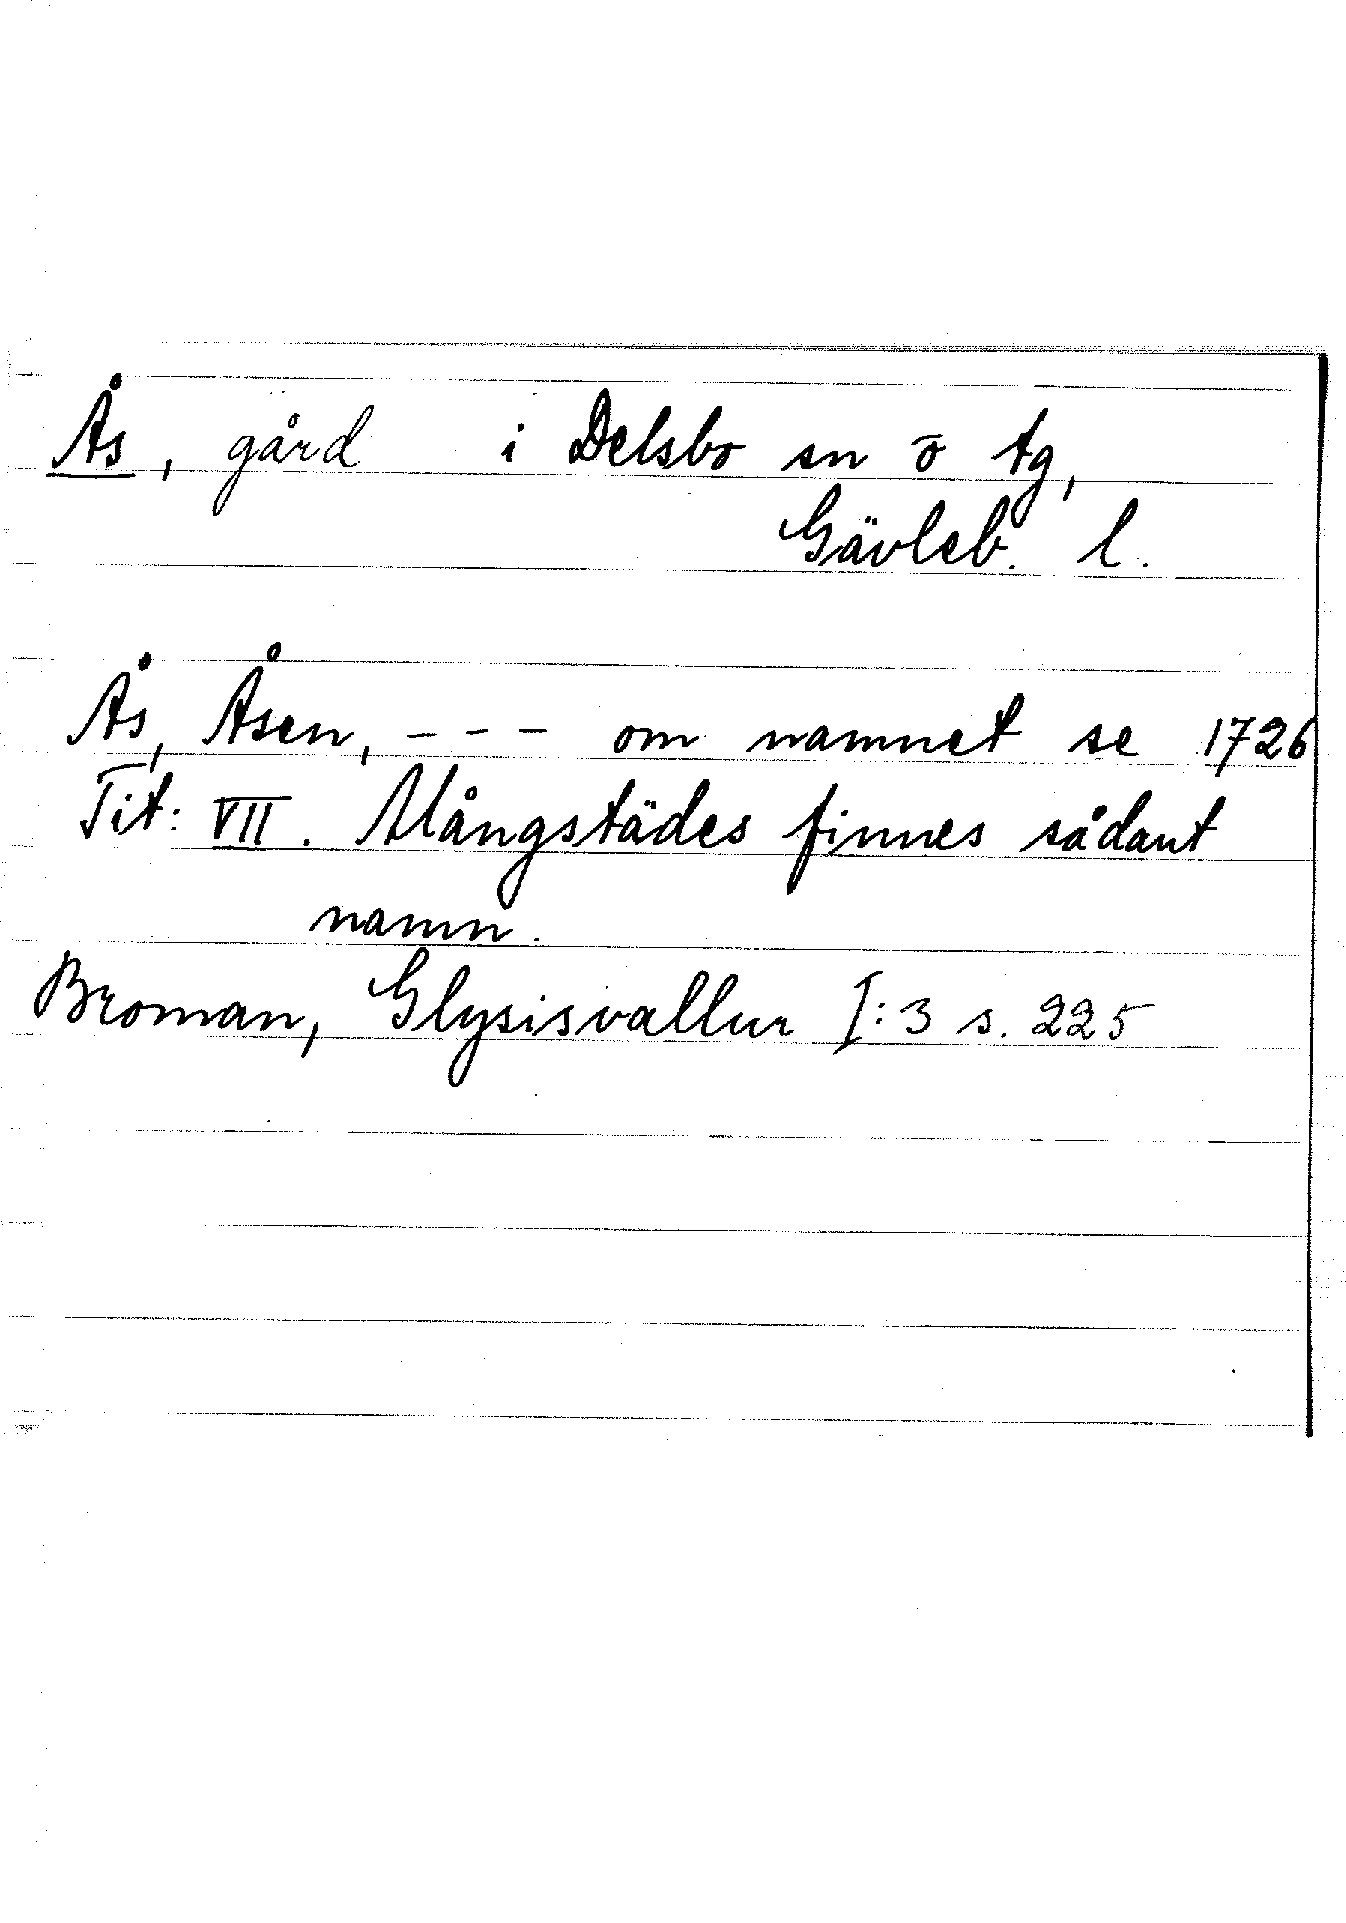 Ås, gård i Delsbo sn o tg,
Gävleb. l.
Ås, Åsen, - - - om namnet se 1726
Tit: VII. Mångstädes finnes sådant
namn.
Broman, Glysisvallur I:3 s. 225